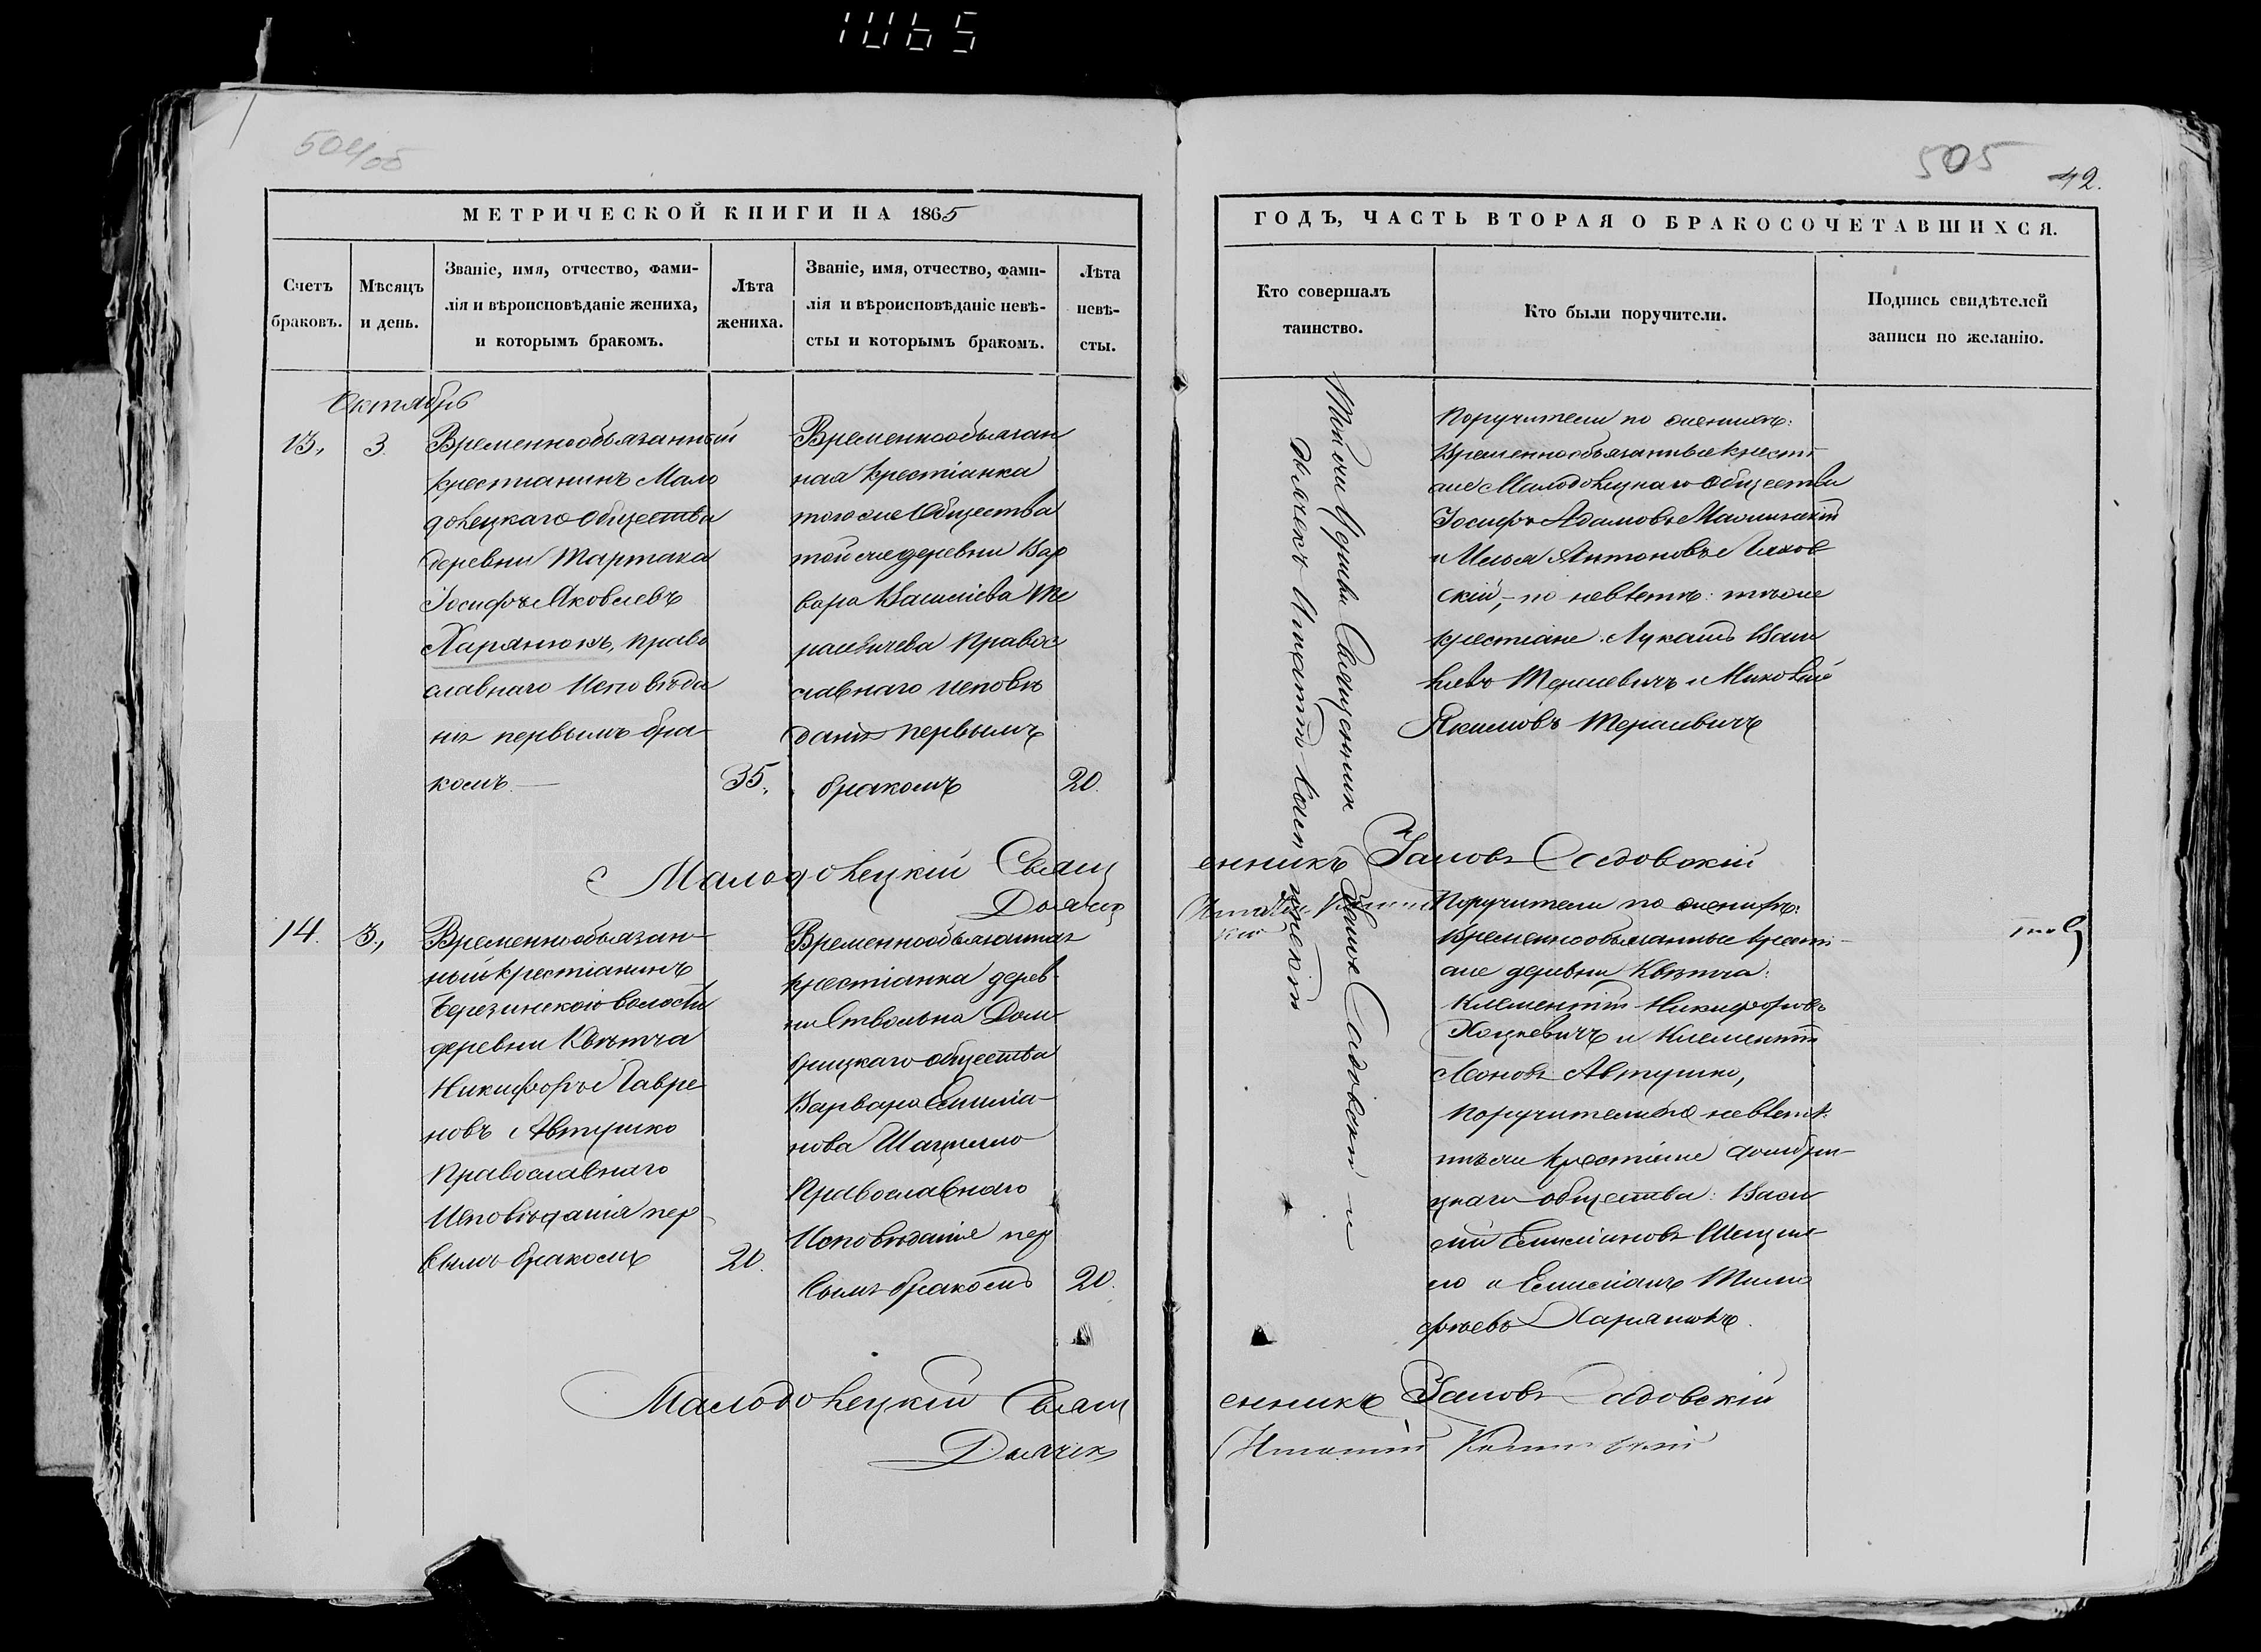 1065
504об
505
42.
МЕТРИЧЕСКОЙ КНИГИ НА 1865
ГОДЪ, ЧАСТЬ ВТОРАЯ О БРАКОСОЧЕТАВШИХСЯ.
Счетъ
браковъ.
Мѣсяцъ
и день.
Званіе, имя, отчество, фами-
лія и вѣроисповѣданіе жениха,
и которымъ бракомъ.
Лѣта
жениха.
Званіе, имя, отчество, фами-
лія и вѣроисповѣданіе невѣ-
сты и которымъ бракомъ.
Лѣта
невѣ-
сты.
Кто совершалъ
таинство.
Кто были поручители.
Подпись свидѣтелей
записи по желанію.
Октябрь
13, 3.
Временнообязанный
крестианинъ Мало
долецкаго Общества
деревни Тартака
Іосифъ Яковлевъ
Харанюкъ, право
славнаго Исповѣда
нія первымъ бра-
комъ.—
35,
Временнообязан
ная крестіанка
того же Общества
той же деревни Вар
вара Василіева Те
расевичева Правос
славнаго исповѣ
данія первымъ
бракомъ
20.
Той же Церкви Священник Іаковъ Садовскій и
дьячекъ Игнатій
Поручители по жениху:
Временнообязанные крест
ане Малодолецкаго Общества
Іосифъ Адамовъ
и Илья Антоновъ Ляхов
скій, — по невѣстѣ: тѣ же
крестіане. Лукашъ Васи
левъ Терасевичъ и
Якимовъ Терасевичъ
Малодолецкій Свящ
енникъ Іаковъ Садовскій
Дьячекъ
14. 3,
Временнообязан-
ный крестіанинъ
Березинской волости
деревни Квѣтча
Никифоръ Лавре
новъ Автушко
Православнаго
Исповѣданія пер
вымъ бракомъ
20.
Временнообязанная
крестіанка дерев-
ни Ствольна Дом-
рицкаго общества
Варвара Емиліа-
нова Шацило
Православнаго
Исповѣданіе пер
вымъ бракомъ
20.
Поручители по женихѣ:
временнообязанные крест-
ане деревни Квѣтча:
Климентій Никифоровъ
Хоцкевичъ и Климентій
Леоновъ Автушко,
поручители по невѣстѣ:
тѣ же крестіане домбри-
цкаго общества: Васи
лій Емиліановъ Шацил-
ло и Емиліанъ Тимо
фѣевъ Харанюкъ.
Малодолецкій Свящ
енникъ Іаковъ Садовскій
Дьячекъ
Игнатій